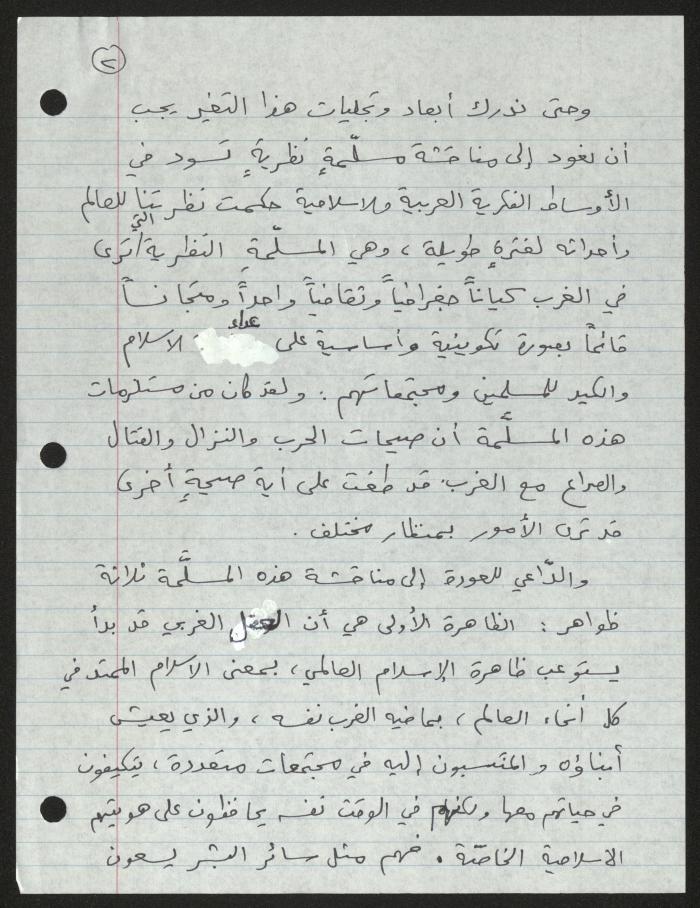 ٢
وحتى ندرك أبعاد وتجليات هذا التغير يجب
أن نعود إلى مناقشة مسلّمةٍ نظريةٍ تسود في
الأوساط الفكرية العربية والاسلامية حكمت نظرتنا للعالم
وأحداثه لفترةٍ طويلة ، وهي المسلّمةِ النظرية التي ترى
في الغرب كياناً جغرافياً وثقافياً واحداً ومتجانساً
قائماً بصورة تكوينية وأساسية على عداء الاسلام
والكيد للمسلمين ومجتمعاتهم . ولقد كان من مستلزمات
هذه المسلَّمة أن صيحات الحرب والنزال والقتال
والصراع مع الغرب قد طغت على أية صيحةٍ أخرى
قد ترى الأمور بمنظار مختلف .
والدّاعي للعودة إلى مناقشة هذه المسلَّمة ثلاثة
ظواهر : الظاهرة الأولى هي أن العقل الغربي قد بدأ
يستوعب ظاهرة الإسلام العالمي ، بمعنى الاسلام الممتد في
كل أنحاء العالم ، بما فيه الغرب نفسه ، والذي يعيش
أبناؤه والمنتسبون إليه في مجتمعات متعددة ، يتكيفون
في حياتهم معها ولكنهم في الوقت نفسه يحافظون على هويتهم
الاسلامية الخاصّة . فهم مثل سائر البشر يسعون